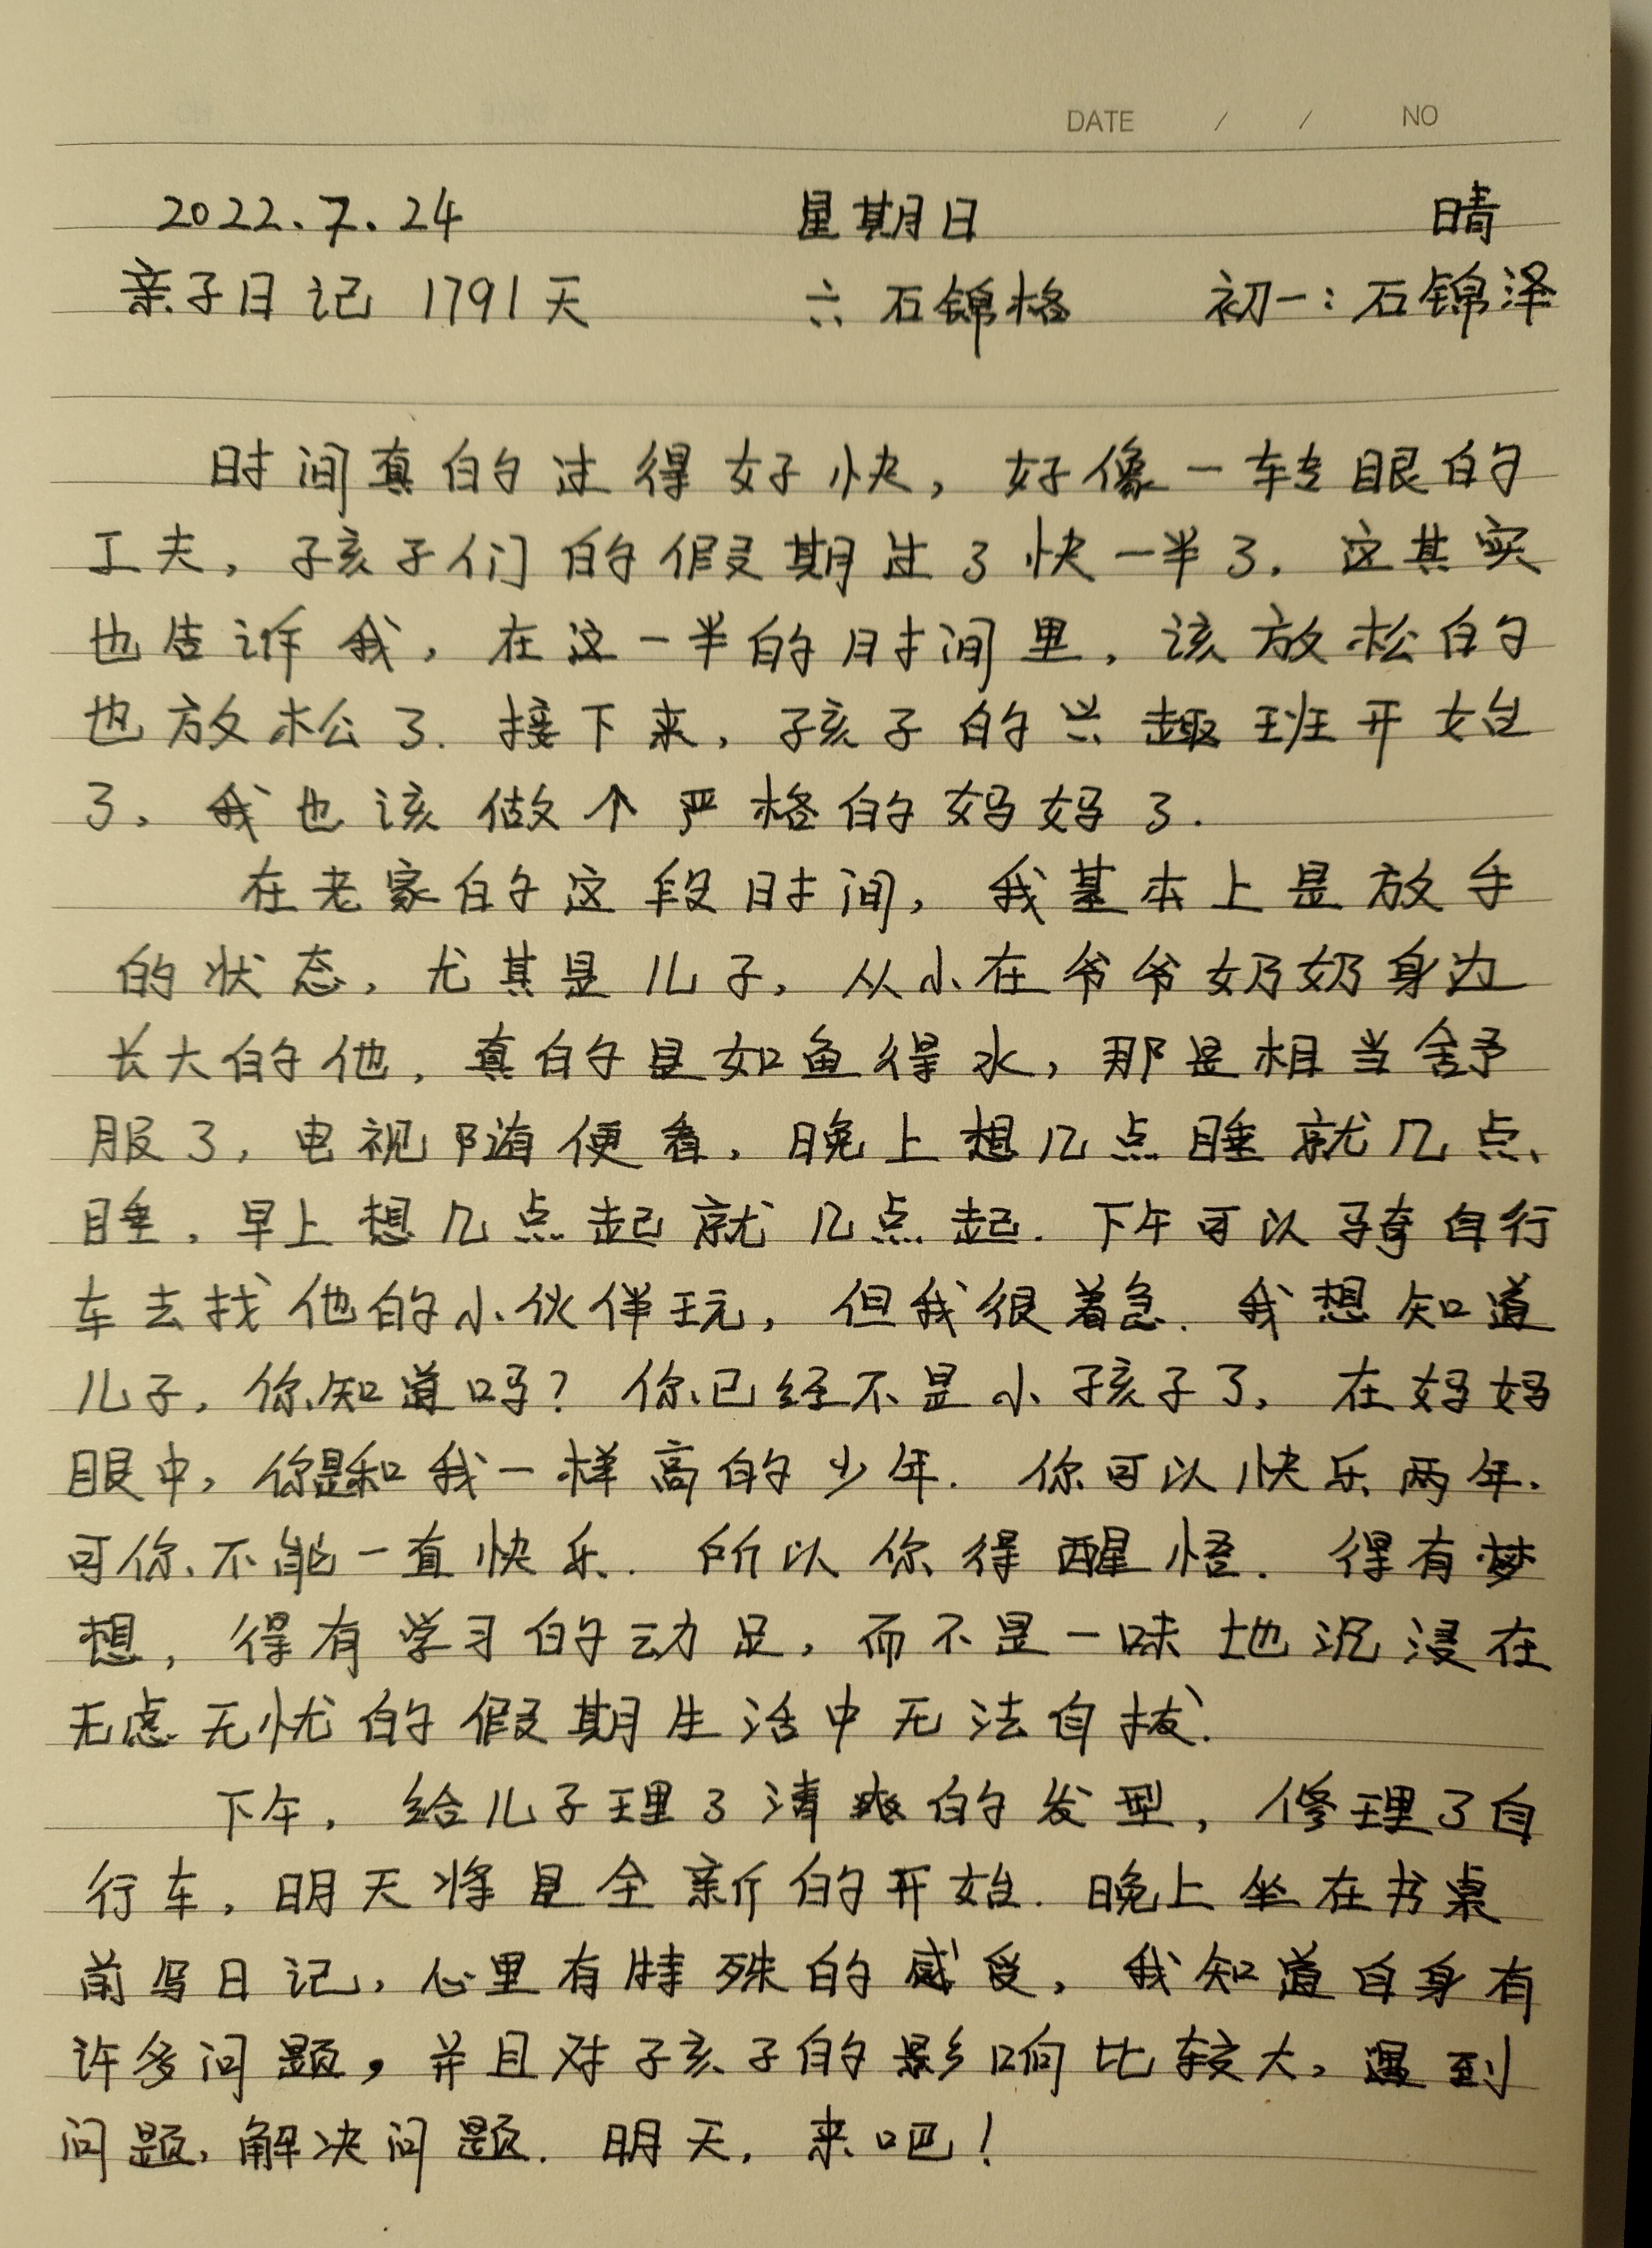 DATE / / NO
2022.7.24 星期日 晴
亲子日记 1791天 六 石锦格 初一:石锦泽
时间真的过得好快,好像一转眼的
工夫,孩子们的假期过了快一半了.这其实
也告诉我,在这一半的时间里,该放松的
也放松了.接下来,孩子的兴趣班开始
了,我也该做个严格的妈妈了.
在老家的这段时间,我基本上是放手
的状态,尤其是儿子,从小在爷爷奶奶身边
长大的他,真的是如鱼得水,那是相当舒
服了,电视随便看,晚上想几点睡就几点
睡,早上想几点起就几点起.下午可以骑自行
车去找他的小伙伴玩,但我很着急.我想知道
儿子,你知道吗?你已经不是小孩子了,在妈妈
眼中,你是和我一样高的少年.你可以快乐两年.
可你不能一直快乐.所以你得醒悟.得有梦
想,得有学习的动足,而不是一味地沉浸在
无虑无忧的假期生活中无法自拔.
下午,给儿子理了清爽的发型,修理了自
行车,明天将是全新的开始.晚上坐在书桌
前写日记,心里有特殊的感受,我知道自身有
许多问题,并且对孩子的影响比较大,遇到
问题,解决问题.明天,来吧!